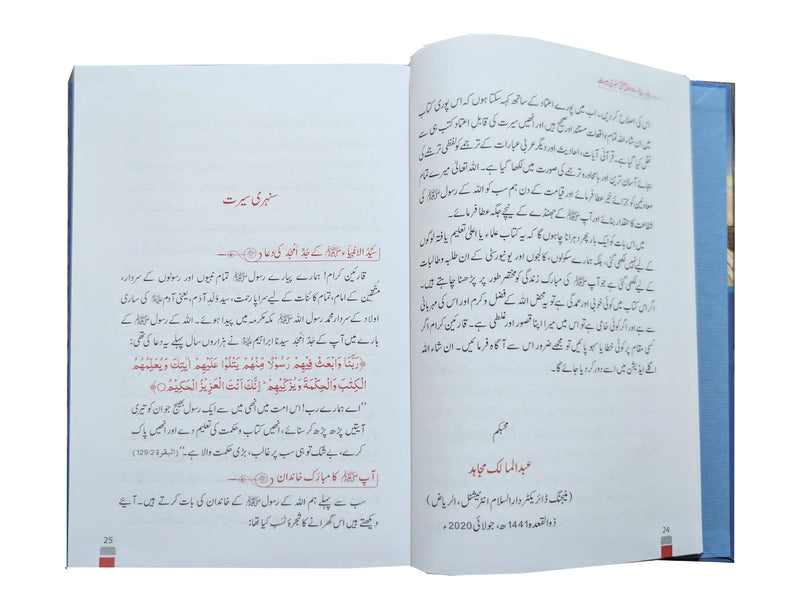 اس کی اصلاح کر دیں۔ اب میں پورے اعتماد کے ساتھ کہہ سکتا ہوں کہ اس پوری کتاب
میں ان شاء اللہ تمام واقعات مستند اور صحیح ہیں اور انھیں سیرت کی قابلِ اعتماد کتب ہی سے
نقل کیا گیا ہے۔ قرآنی آیات، احادیث اور دیگر عربی عبارات کے ترجمے کو لفظی ترجمے کی
بجائے آسان ترین اور بامحاورہ ترجمے کی صورت میں لکھا گیا ہے۔ اللہ تعالیٰ میرے تمام
معاونین کو جزائے خیر عطا فرمائے اور قیامت کے دن ہم سب کو اللہ کے رسول ﷺ کی
شفاعت کا حقدار بنائے اور آپ ﷺ کے جھنڈے کے نیچے جگہ عطا فرمائے۔
میں اس بات کو ایک بار پھر دہرانا چاہوں گا کہ یہ کتاب علماء یا اعلیٰ تعلیم یافتہ لوگوں
کے لیے نہیں لکھی گئی، بلکہ ہمارے سکولوں، کالجوں اور یونیورسٹی کے ان طلبہ و طالبات
کے لیے لکھی گئی ہے جو آپ ﷺ کی مبارک زندگی کو مختصر طور پر پڑھنا چاہتے ہیں۔
اگر اس کتاب میں کوئی خوبی اور عمدگی ہے تو یہ محض اللہ کے فضل و کرم اور اس کی مہربانی
سے ہے اور اگر کوئی خامی ہے تو اس میں میرا اپنا قصور اور غلطی ہے۔ قارئین کرام اگر
کسی مقام پر کوئی خطا یا سہو پائیں تو مجھے ضرور اس سے آگاہ فرمائیں۔ ان شاء اللہ
اگلے ایڈیشن میں اسے دور کر دیا جائے گا۔
محبکم
عبدالمالک مجاہد
(مینجنگ ڈائریکٹر دارالسلام انٹرنیشنل، الریاض)
ذوالقعدہ 1441ھ، جولائی 2020ء
24
سنہری سیرت
سیّدُ الانبیاء ﷺ کے جدِ امجد کی دعا
قارئین کرام! ہمارے پیارے رسول ﷺ تمام نبیوں اور رسولوں کے سردار،
متقین کے امام، تمام کائنات کے لیے سراپا رحمت، سید وُلد آدم، یعنی آدم علیہ السلام کی ساری
اولاد کے سردار محمد رسول اللہ ﷺ مکہ مکرمہ میں پیدا ہوئے۔ اللہ کے رسول ﷺ کے
بارے میں آپ کے جد امجد سیدنا ابراہیم علیہ السلام نے ہزاروں سال پہلے یہ دعا کی تھی:
﴿رَبَّنَا وَابْعَثْ فِيهِمْ رَسُولًا مِّنْهُمْ يَتْلُوا عَلَيْهِمْ اٰيٰتِكَ وَيُعَلِّمُهُمُ
الْكِتٰبَ وَالْحِكْمَةَ وَيُزَكِّيهِمْ ۭ اِنَّكَ اَنْتَ الْعَزِيزُ الْحَكِيمُ ○﴾
"اے ہمارے رب! اس امت میں انھی میں سے ایک رسول بھیج جو ان کو تیری
آیتیں پڑھ پڑھ کر سنائے، انھیں کتاب و حکمت کی تعلیم دے اور انھیں پاک
کرے، بے شک تو ہی سب پر غالب، بڑی حکمت والا ہے۔" (البقرة 129:2)
آپ ﷺ کا مبارک خاندان
سب سے پہلے ہم اللہ کے رسول ﷺ کے خاندان کی بات کرتے ہیں۔ آئیے
دیکھتے ہیں اس گھرانے کا شجرۂ نسب کیا تھا:
25